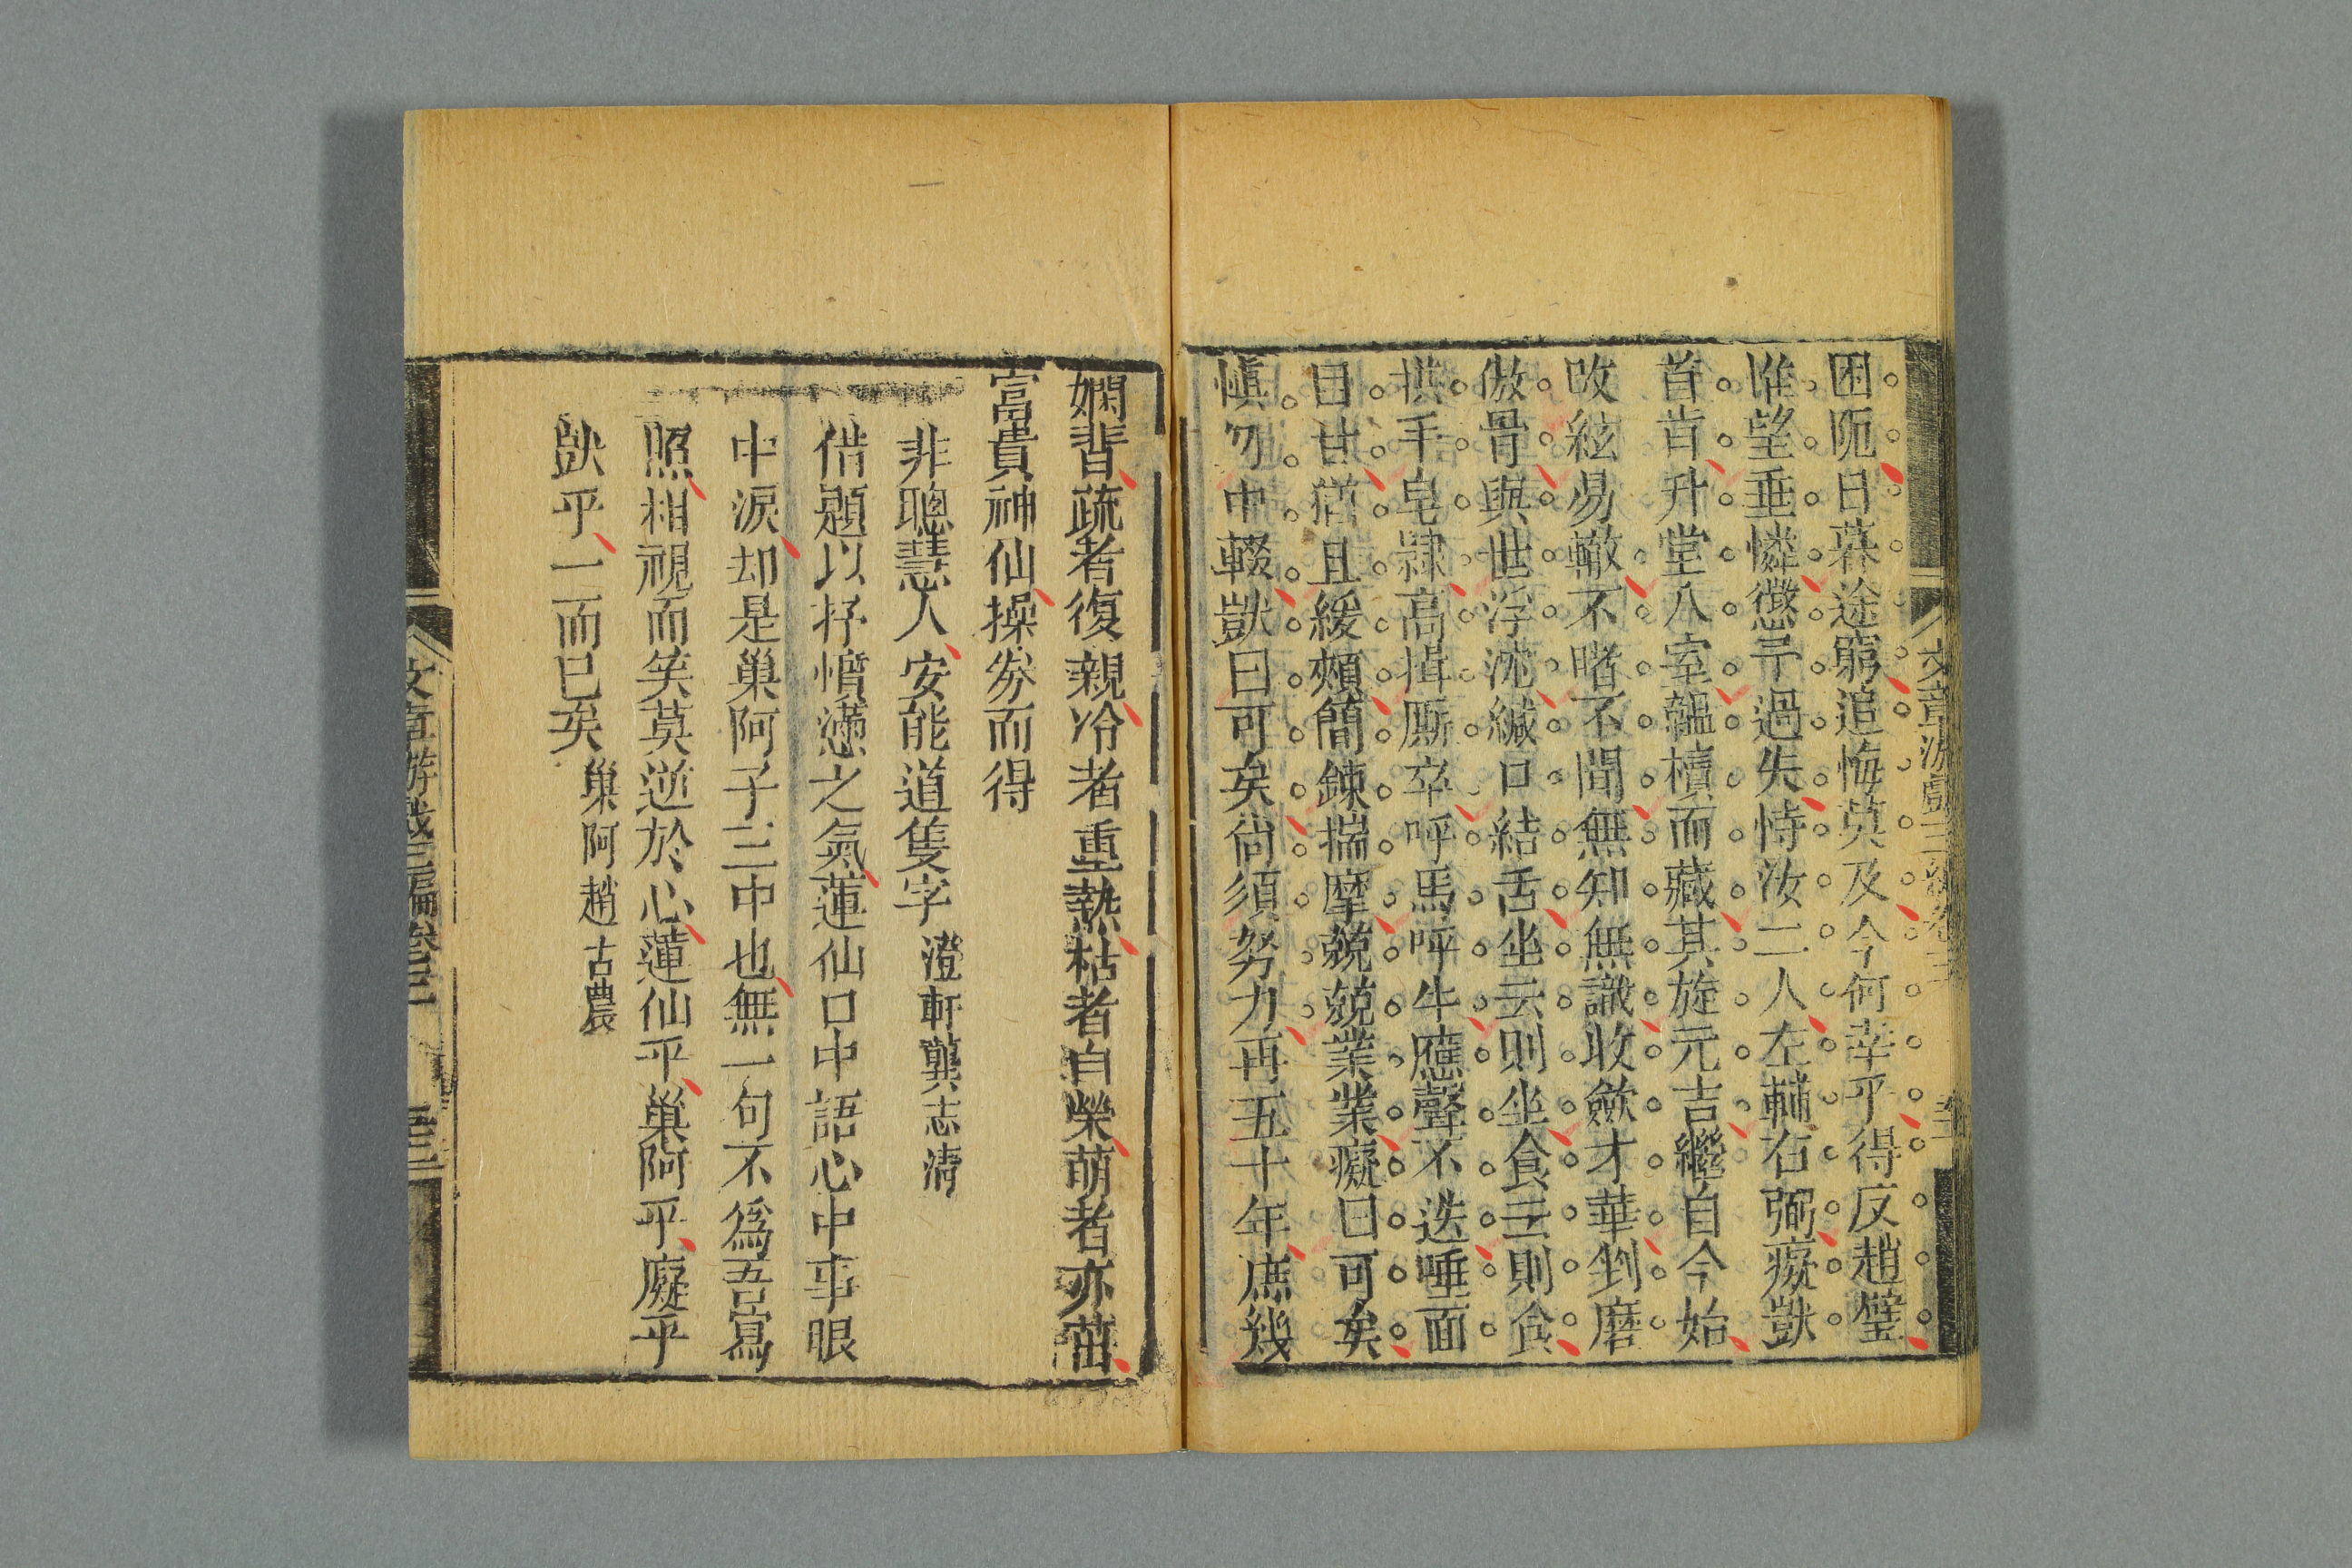 困阨日暮途窮追悔莫及今何幸乎得反趙璧
惟望垂憐懲予過失恃汝二人左輔右弼癡獃
首肯升堂入室韞櫝而藏其旋元吉繼自今始
改絃易轍不睹不聞無知無識收歛才華剉磨
傲骨與世浮沈緘口結舌坐云則坐食云則食
拱手皂隷高揖厮卒呼馬呼牛應聲不迭唾面
目甘猶且緩頰簡鍊揣摩兢兢業業癡曰可矣
愼勿中輟獃曰可矣尙須努力再五十年庶幾
嫻背疏者復親冷者重熱枯者自榮萌者亦茁
富貴神仙操劵而得
非聰慧人安能道隻字 澄軒龔志淸
借題以抒憤懣之氣蓮仙口中語心中事眼
中淚却是巢阿子三中也無一句不爲吾寫
照相視而笑莫逆於心蓮仙乎巢阿乎癡乎
獃乎一而已矣 巢阿趙古農
文章游戲三編卷三